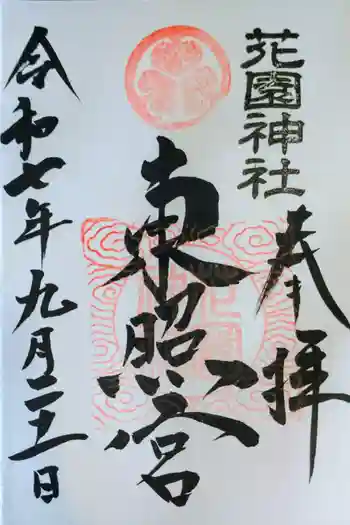 花園神社
奉拝
東照宮
令和七年九月二十五日